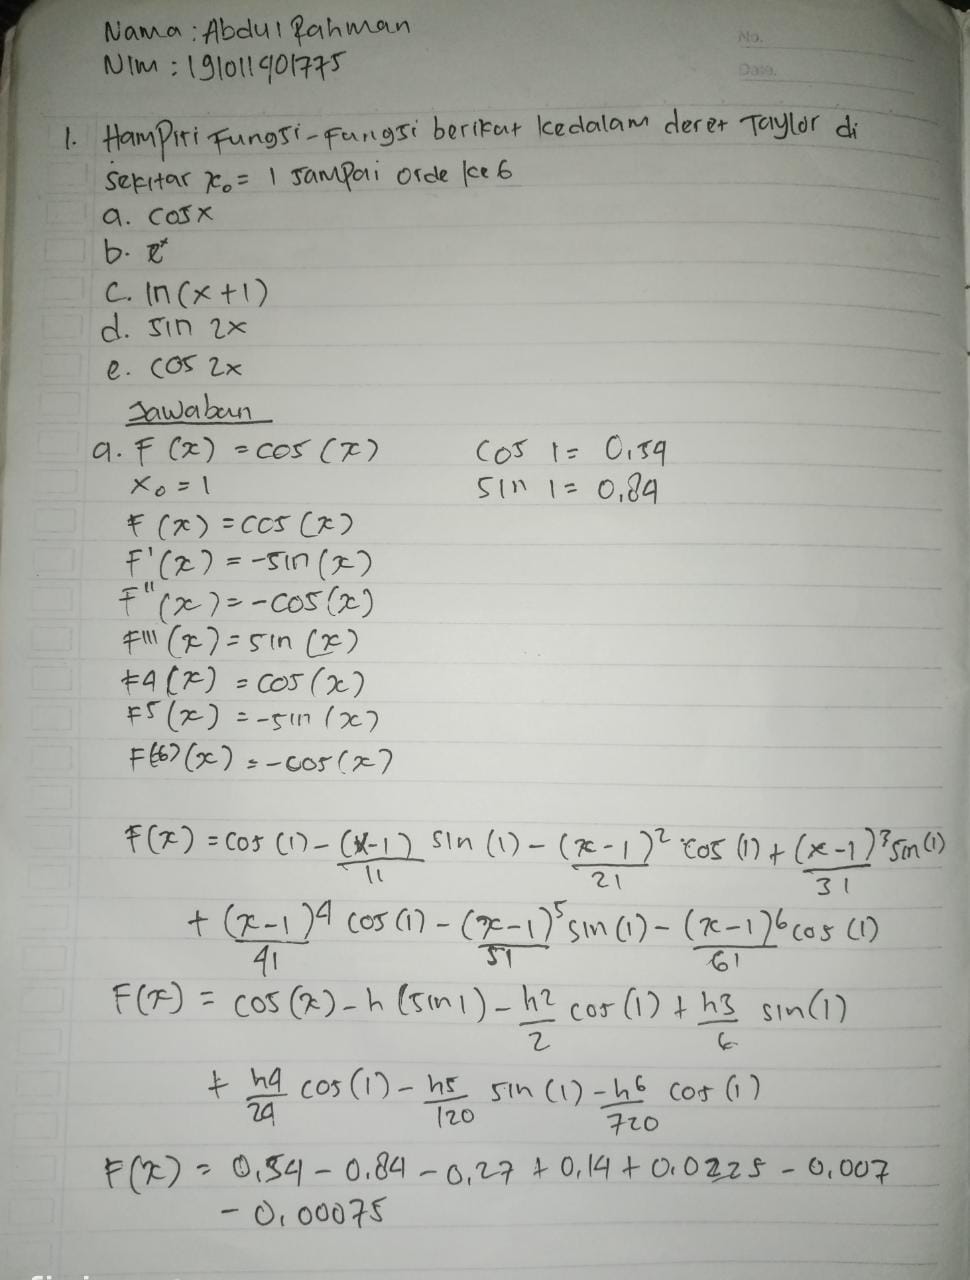 No.
Date.
Nama : Abdul Rahman
NIM : 191011401775
1. Hampiri Fungsi-Fungsi berikut kedalam deret Taylor di
sekitar x₀ = 1 sampai orde ke 6
a. cos x
b. eˣ
c. ln (x + 1)
d. sin 2x
e. cos 2x
Jawaban
a. F (x) = cos (x) cos 1 = 0,54
x₀ = 1 sin 1 = 0,84
F (x) = cos (x)
F' (x) = -sin (x)
F" (x) = -cos (x)
F''' (x) = sin (x)
F4 (x) = cos (x)
F5 (x) = -sin (x)
F(6) (x) = -cos (x)
F(x) = cos (1) - (x-1)/1! sin (1) - (x-1)²/2! cos (1) + (x-1)³/3! sin (1)
+ (x-1)4/4! cos (1) - (x-1)5/5! sin (1) - (x-1)6/6! cos (1)
F(x) = cos (x) - h (sin 1) - h2/2 cos (1) + h3/6 sin (1)
+ h4/24 cos (1) - h5/120 sin (1) - h6/720 cos (1)
F(x) = 0,54 - 0.84 - 0,27 + 0,14 + 0.0225 - 0,007
- 0,00075